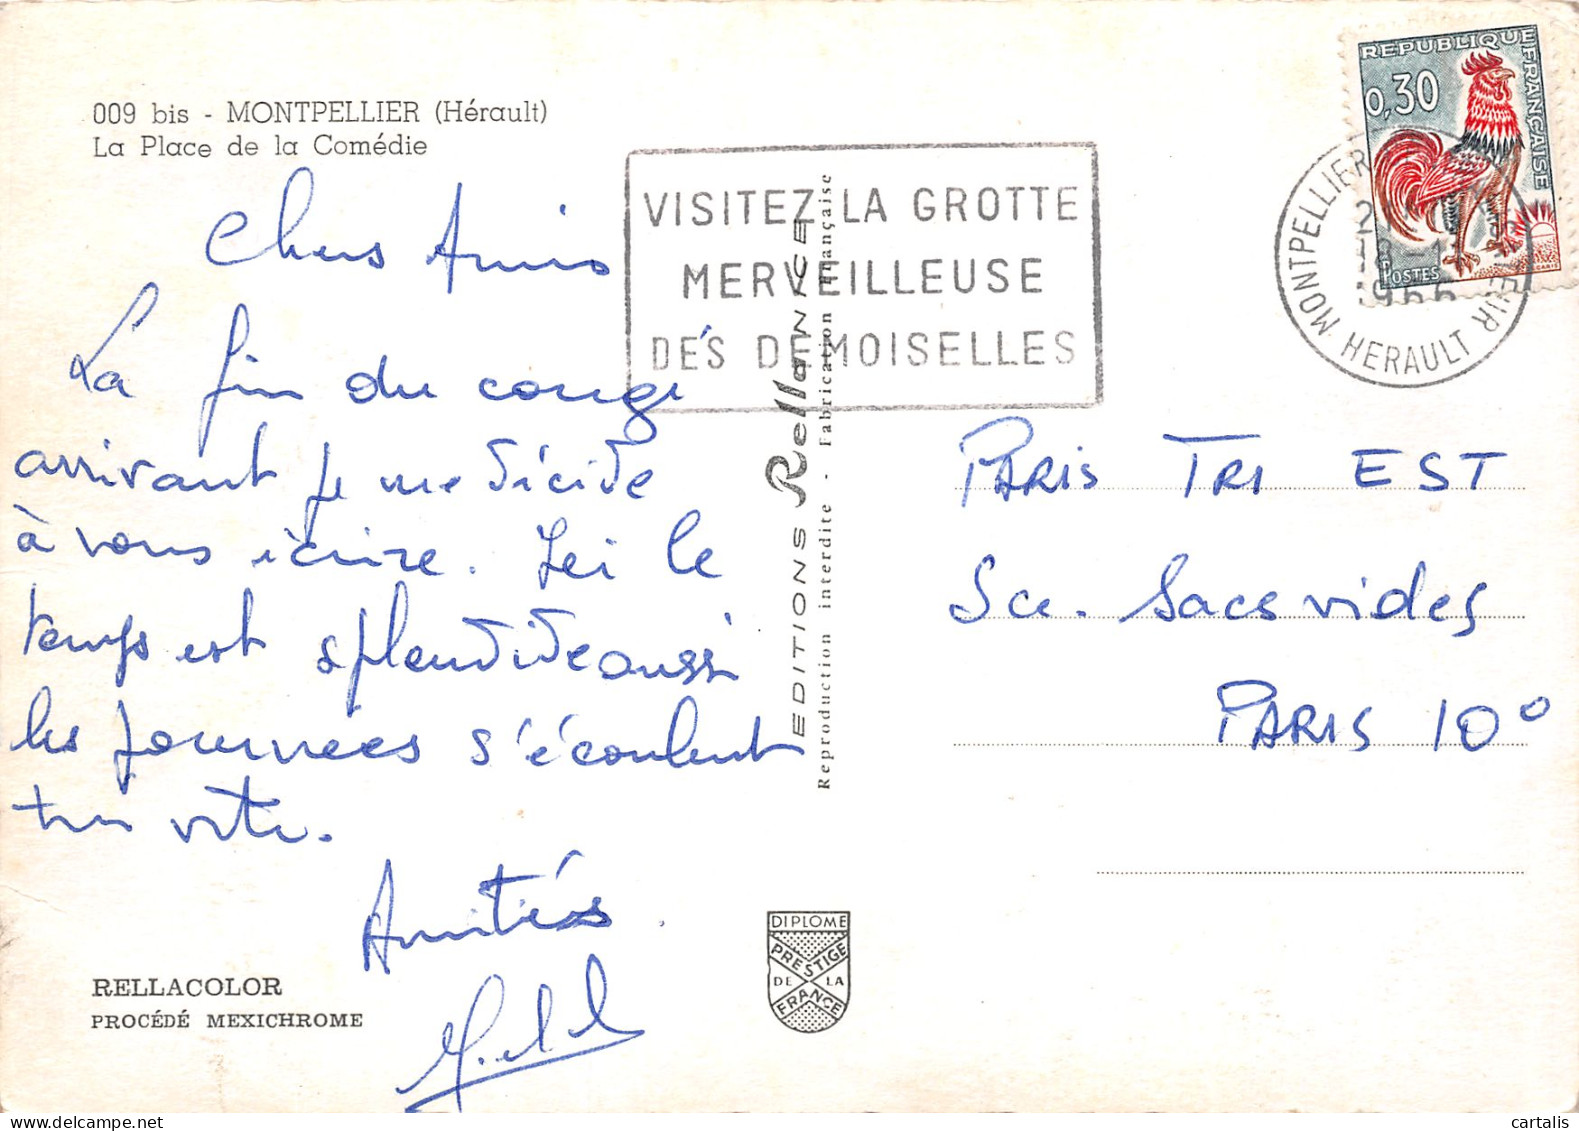 009 bis - MONTPELLIER (Hérault)
La Place de la Comédie
Chers Amis
La fin du congé
arrivant je me décide
à vous écrire. Ici le
temps est splendide aussi
les journées s'écoulent
très vite.
Amitiés
RELLACOLOR
PROCÉDÉ MEXICHROME
VISITEZ LA GROTTE
MERVEILLEUSE
DES DEMOISELLES
EDITIONS Rella NICE
Reproduction interdite - Fabrication Française
DIPLOME
PRESTIGE
DE LA
FRANCE
REPUBLIQUE FRANÇAISE
0,30
POSTES
MONTPELLIER
HERAULT
1966
PARIS TRI EST
Sce. Sacs vides
PARIS 10°
cartalis